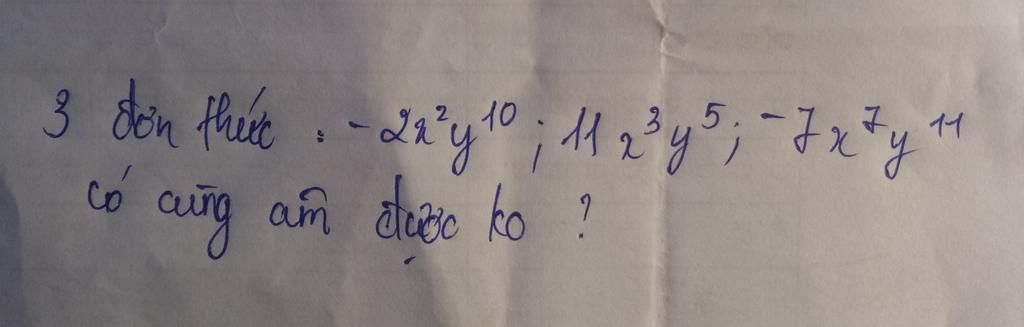 3 đơn thức : -2x²y¹⁰ ; 11x³y⁵ ; -7x⁷y¹¹
có cùng âm được ko ?